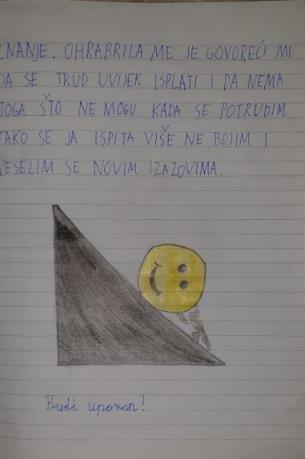 ZNANJE. OHRABRILA ME JE GOVOREĆI MI
DA SE TRUD UVIJEK ISPLATI I DA NEMA
TOGA ŠTO NE MOGU KADA SE POTRUDIM.
TAKO SE JA ISPITA VIŠE NE BOJIM I
VESELIM SE NOVIM IZAZOVIMA.
Budi uporan!